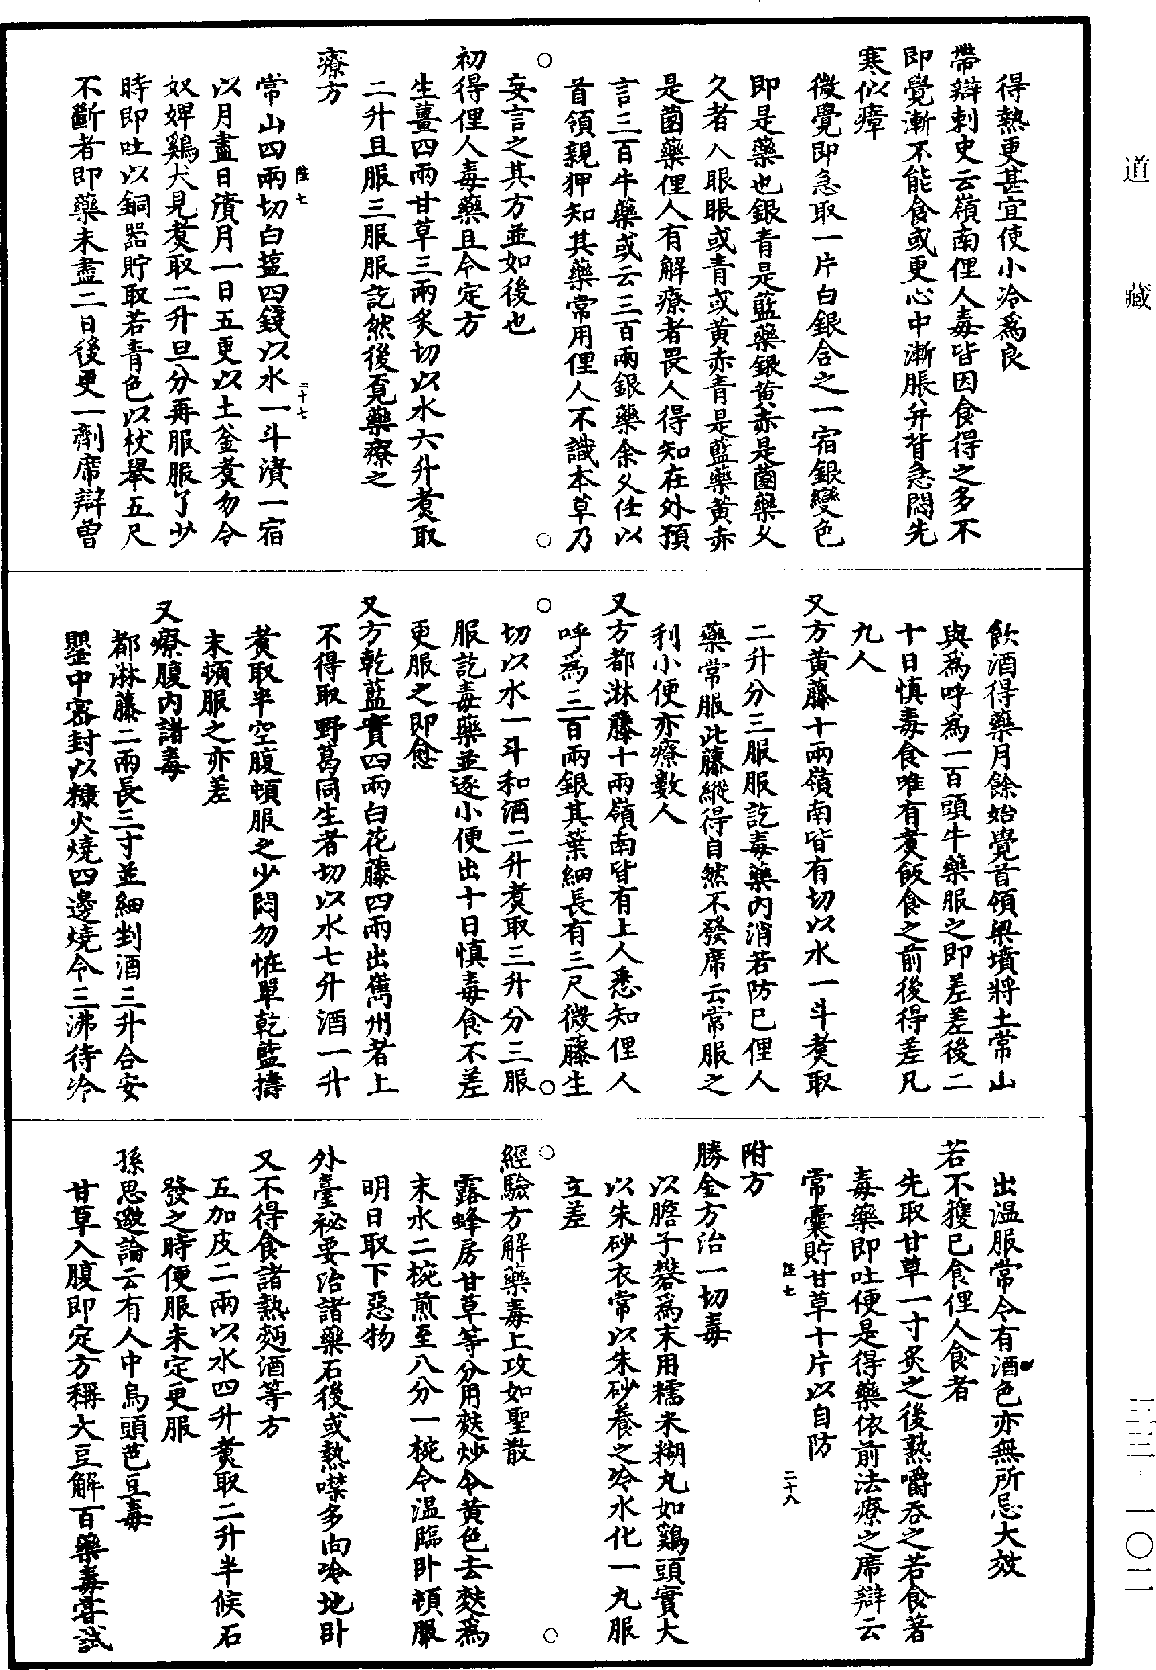 道藏
三三 一〇二
得熱更甚宜使小冷爲良
帶辯刺史云嶺南俚人毒皆因食得之多不
即覺漸不能食或更心中漸脹并背急悶先
寒似瘴
微覺即急取一片白銀含之一宿銀變色
即是藥也銀青是藍藥銀黃赤是菌藥乆
久者入眼眼或青或黃赤青是藍藥黃赤
是菌藥俚人有解療者畏人得知在外預
言三百牛藥或云三百兩銀藥余乆仕以
首領親狎知其藥常用俚人不識本草乃
妄言之其方並如後也
初得俚人毒藥且令定方
生薑四兩甘草三兩炙切以水六升煑取
二升且服三服服訖然後覔藥療之
療方
陸七
二十七
常山四兩切白塩四錢以水一斗漬一宿
以月盡日漬月一日五更以土釜煑勿令
奴婢鷄犬見煑取二升旦分再服服了少
時即吐以銅器貯取若青色以杖舉五尺
不斷者即藥未盡二日後更一劑席辯曾
飲酒得藥月餘始覺首領梁墳將土常山
與爲呼爲一百頭牛藥服之即差差後二
十日慎毒食唯有煑飯食之前後得差凡
九人
又方黃藤十兩嶺南皆有切以水一斗煑取
二升分三服服訖毒藥內消若防已俚人
藥常服此藤縱得自然不發席云常服之
利小便亦療數人
又方都淋藤十兩嶺南皆有土人悉知俚人
呼爲三百兩銀其葉細長有三尺微藤生
切以水一斗和酒二升煑取三升分三服
服訖毒藥並逐小便出十日慎毒食不差
更服之即愈
又方乾藍實四兩白花藤四兩出嶲州者上
不得取野葛同生者切以水七升酒一升
煑取半空腹頓服之少悶勿恠單乾藍擣
末頓服之亦差
又療腹內諸毒
都淋藤二兩長三寸並細剉酒三升合安
罌中密封以糠火燒四邊燒令三沸待冷
出溫服常令有酒色亦無所忌大效
若不獲已食俚人食者
先取甘草一寸炙之後熟嚼吞之若食著
毒藥即吐便是得藥依前法療之席辯云
常囊貯甘草十片以自防
陸七
二十八
附方
勝金方治一切毒
以膽子礬爲末用糯米糊丸如鷄頭實大
以朱砂衣常以朱砂養之冷水化一丸服
立差
經驗方解藥毒上攻如聖散
露蜂房甘草等分用麩炒令黃色去麩爲
末水二椀煎至八分一椀令溫臨卧頓服
明日取下惡物
外臺祕要治諸藥石後或熱噤多向冷地卧
又不得食諸熱麪酒等方
五加皮二兩以水四升煑取二升半候石
發之時便服未定更服
孫思邈論云有人中烏頭芭豆毒
甘草入腹即定方稱大豆解百藥毒甞試